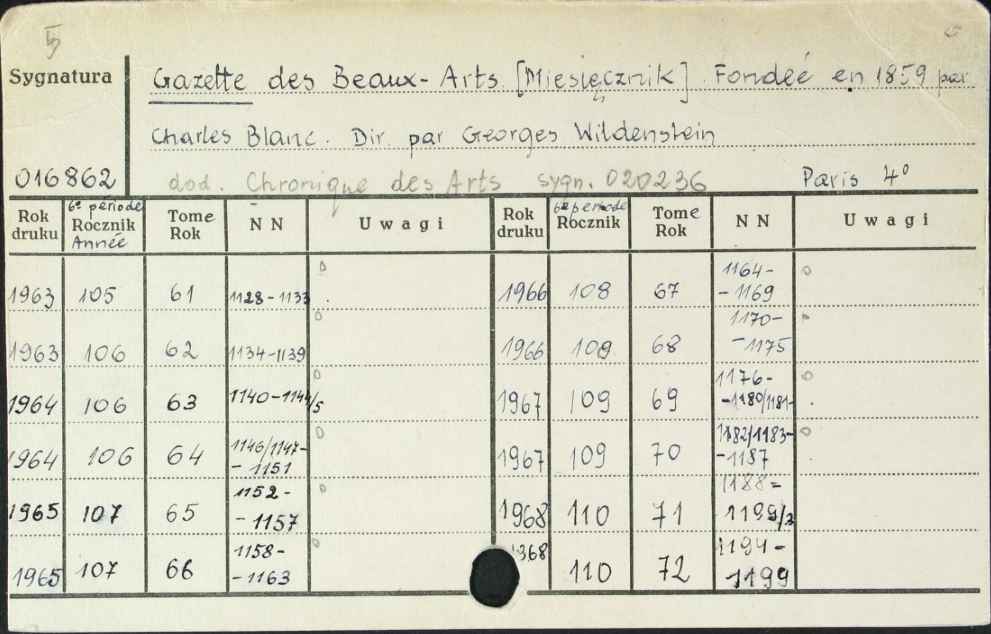 5
Sygnatura
Gazette des Beaux-Arts [Miesięcznik] Fondeé en 1859 par
Charles Blanc. Dir. par Georges Wildenstein
016862 dod. Chronique des Arts sygn. 020236 Paris 4°
Rok druku 6e période Rocznik Année Tome Rok NN Uwagi Rok druku 6e periode Rocznik Tome Rok NN Uwagi
1963 105 61 1128-1133 0 1966 108 67 1164--1169 0
1963 106 62 1134-1139 0 1966 108 68 1170--1175
1964 106 63 1140-1144/5 0 1967 109 69 1176--1180/1181- 0
1964 106 64 1146/1147--1151 0 1967 109 70 1182/1183--1187 0
1965 107 65 1152--1157 0 1968 110 71 1188=
1965 107 66 1158--1163 0 368 110 72 1194--1199